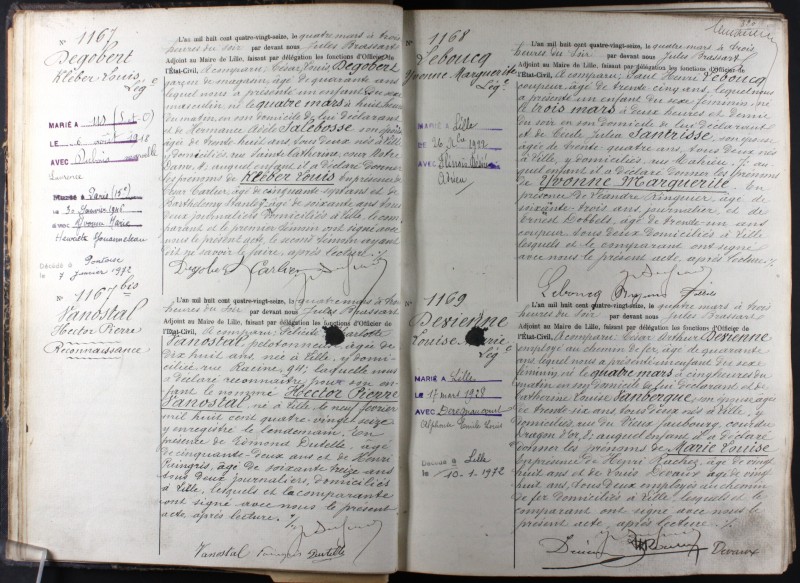 N° 1167
Degobert
Kléber Louis,
Lég e
MARIÉ A
LE 6 août 1918
AVEC Dubois
Laurence
MARIÉ A Paris (15e)
le 30 Janvier 1946
avec Marie
Henriette
Décédé à Pontoise
le 7 janvier 1972
L'an mil huit cent quatre-vingt-seize, le quatre mars à trois
heures du soir par devant nous Jules Brassart
Adjoint au Maire de Lille, faisant par délégation les fonctions d'Officier de
l'État-Civil, a comparu César Louis Degobert
garçon de magasin, âgé de quarante ans,
lequel nous a présenté un enfant du sexe
masculin, né le quatre mars à huit heures
du matin, en son domicile de lui déclarant
et de Hermance Adèle Salebosse, son épouse
âgée de trente huit ans, tous deux nés à Lille,
y domiciliés, rue Sainte Catherine, cour Notre
Dame, auquel enfant il a déclaré donner
les prénoms de Kléber Louis. En présence de
Carlier, âgé de cinquante sept ans et de
Barthélemy âgé de soixante ans, tous
deux journaliers, domiciliés à Lille, le com-
parant et le premier témoin ont signé avec
nous le présent acte, le second témoin ayant
dit ne savoir le faire, après lecture.
Degobert Carlier
N° 1167 bis
Vanostal
Hector Pierre
Reconnaissance
L'an mil huit cent quatre-vingt-seize, le quatre mars à trois
heures du soir par devant nous Jules Brassart
Adjoint au Maire de Lille, faisant par délégation les fonctions d'Officier de
l'État-Civil, a comparu Félicité Charlotte
Vanostal, pelotonneuse, âgée de
dix huit ans, née à Lille, y domi-
ciliée, rue Racine, 94, laquelle nous
a déclaré reconnaître pour son en-
fant le nommé Hector Pierre
Vanostal, né à Lille, le neuf février
mil huit cent quatre-vingt seize
y enregistré le lendemain. En
présence de Edmond Dutille, âgé
de cinquante-deux ans et de Henri
âgé de soixante treize ans
tous deux journaliers, domiciliés
à Lille, lesquels et la comparante
ont signé avec nous le présent
acte, après lecture.
Vanostal Dutille
N° 1168
Leboucq
Yvonne Marguerite
Lég e
MARIÉE A Lille
LE 26 1922
AVEC
L'an mil huit cent quatre-vingt-seize, le quatre mars à trois
heures du soir par devant nous Jules Brassart
Adjoint au Maire de Lille, faisant par délégation les fonctions d'Officier de
l'État-Civil, a comparu Paul Henri Leboucq
coupeur, âgé de trente cinq ans, lequel nous
a présenté un enfant du sexe féminin, né
le trois mars à deux heures et demie
du soir en son domicile de lui déclarant
et de Cécile Julia Santrisse, son épouse
âgée de trente-quatre ans, tous deux nés
à Lille, y domiciliés, rue Mahieu, 7, au-
quel enfant il a déclaré donner les prénoms
de Yvonne Marguerite. En
présence de Léandre Ringuer, âgé de
soixante trois ans, journalier, et de
Ernest Dobbels, âgé de trente un ans
coupeur, tous deux domiciliés à Lille
lesquels et le comparant ont signé
avec nous le présent acte, après lecture.
Leboucq
N° 1169
Devienne
Louise Marie,
Lég e
MARIÉE A Lille
LE 17 mars 1928
AVEC
Alphonse Emile Louis
Décédée à Lille
le 10.1.1972
L'an mil huit cent quatre-vingt-seize, le quatre mars à trois
heures du soir par devant nous Jules Brassart
Adjoint au Maire de Lille, faisant par délégation les fonctions d'Officier de
l'État-Civil, a comparu César Arthur Devienne
employé au chemin de fer, âgé de quarante
ans, lequel nous a présenté un enfant du sexe
féminin, né le quatre mars à cinq heures du
matin en son domicile de lui déclarant et de
Catherine Louise Vanberque, son épouse, âgée
de trente-six ans, tous deux nés à Lille, y
domiciliés, rue du Vieux faubourg, cour du
Dragon d'Or, 5, auquel enfant il a déclaré
donner les prénoms de Marie Louise
En présence de Henri Rachez, âgé de vingt
huit ans et de Louis Devaux, âgé de vingt
huit ans, tous deux employés au chemin
de fer, domiciliés à Lille, lesquels et le
comparant ont signé avec nous le
présent acte, après lecture.
Devaux